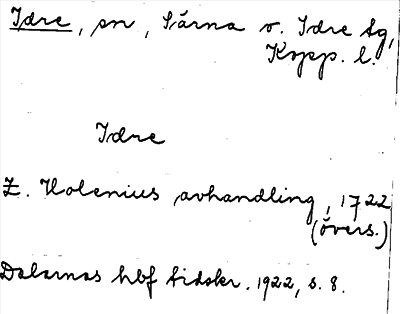 Idre, sn, Särna o. Idre tg,
Kopp. l.
Idre
Z. Holenius avhandling, 1722
(övers.)
Dalarnas hbf tidskr. 1922, s. 8.